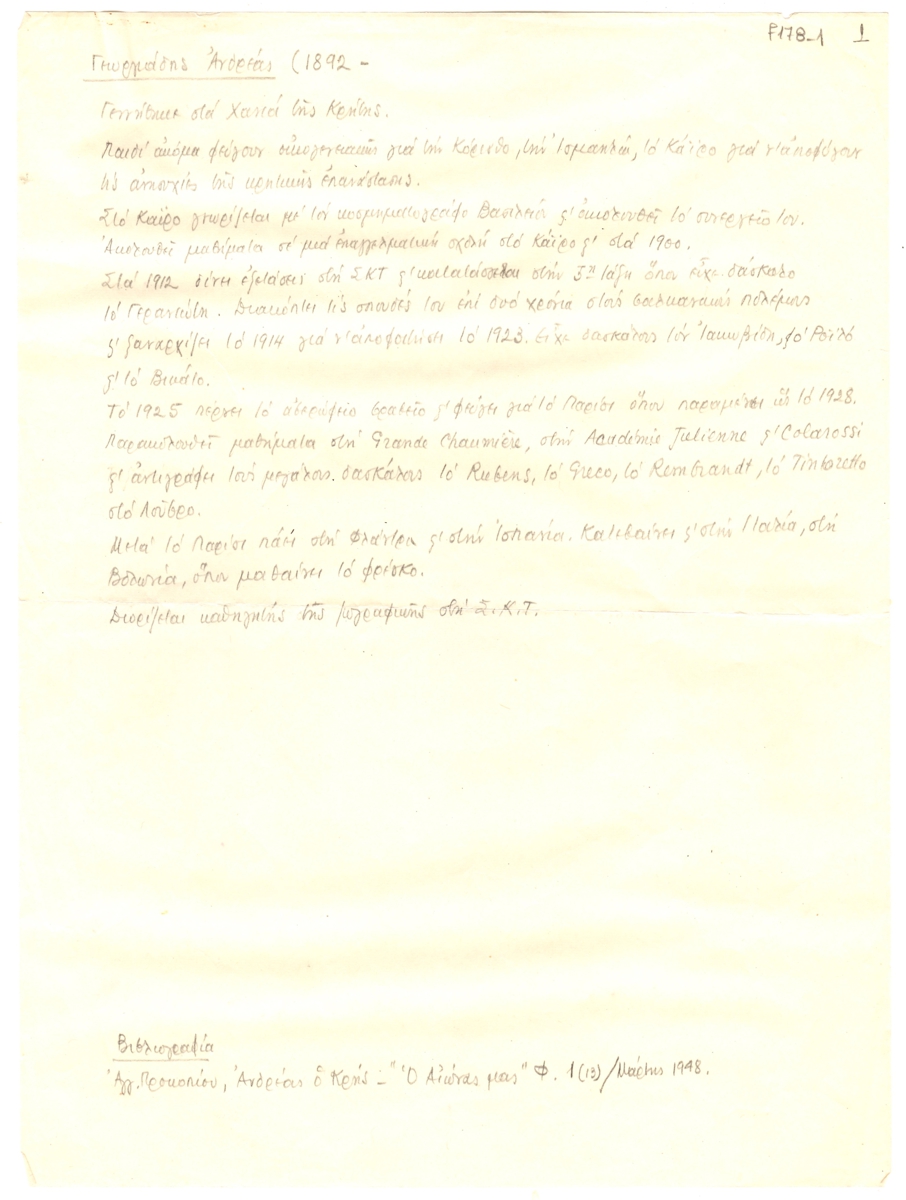 F178-1 1
Γεωργιάδης Ἀνδρέας (1892 -
Γεννήθηκε στά Χανιά τῆς Κρήτης.
Παιδί ἀκόμα φεύγουν οἰκογενειακῶς γιά τήν Κόρινθο, τήν Ἰσμαηλία, τό Κάϊρο γιά ν' ἀποφύγουν
τίς ἀνησυχίες τῆς κρητικῆς ἐπανάστασης.
Στό Κάϊρο γνωρίζεται μέ τόν κοσμηματογράφο Βασιλείου ϛ' ἀκολουθεῖ τό συνεργεῖο του.
Ἀκολουθεῖ μαθήματα σέ μιά ἐπαγγελματική σχολή στό Κάϊρο ϛ' στά 1900.
Στά 1912 δίνει ἐξετάσεις στή ΣΚΤ ϛ' κατατάσσεται στήν 3η τάξη ὅπου εἶχε δάσκαλο
τό Γερανιώτη. Διακόπτει τίς σπουδές του ἐπί δυό χρόνια στούς βαλκανικούς πολέμους
ϛ' ξαναρχίζει τό 1914 γιά ν' ἀποφοιτήσει τό 1923. Εἶχε δασκάλους τόν Ἰακωβίδη, τό Ροϊλό
ϛ' τό Βικάτο.
Τό 1925 πέρνει τό ἀβερώφειο βραβεῖο ϛ' φεύγει γιά τό Παρίσι ὅπου παραμένει ὥς τό 1928.
Παρακολουθεῖ μαθήματα στή Grande Chaumière, στήν Académie Julienne ϛ' Colarossi
ϛ' ἀντιγράφει τούς μεγάλους δασκάλους τό Rubens, τό Greco, τό Rembrandt, τό Tintoretto
στό Λοῦβρο.
Μετά τό Παρίσι πάει στή Φλάντρα ϛ' στήν Ἱσπανία. Κατεβαίνει ϛ' στήν Ἰταλία, στή
Βολωνία, ὅπου μαθαίνει τό φρέσκο.
Διορίζεται καθηγητής τῆς ζωγραφικῆς στή Σ.Κ.Τ.
Βιβλιογραφία
Ἀγγ. Προκοπίου, Ἀνδρέας ὁ Κρής - "Ὁ Αἰώνας μας" Φ. 1 (13) / Μάρτης 1948.